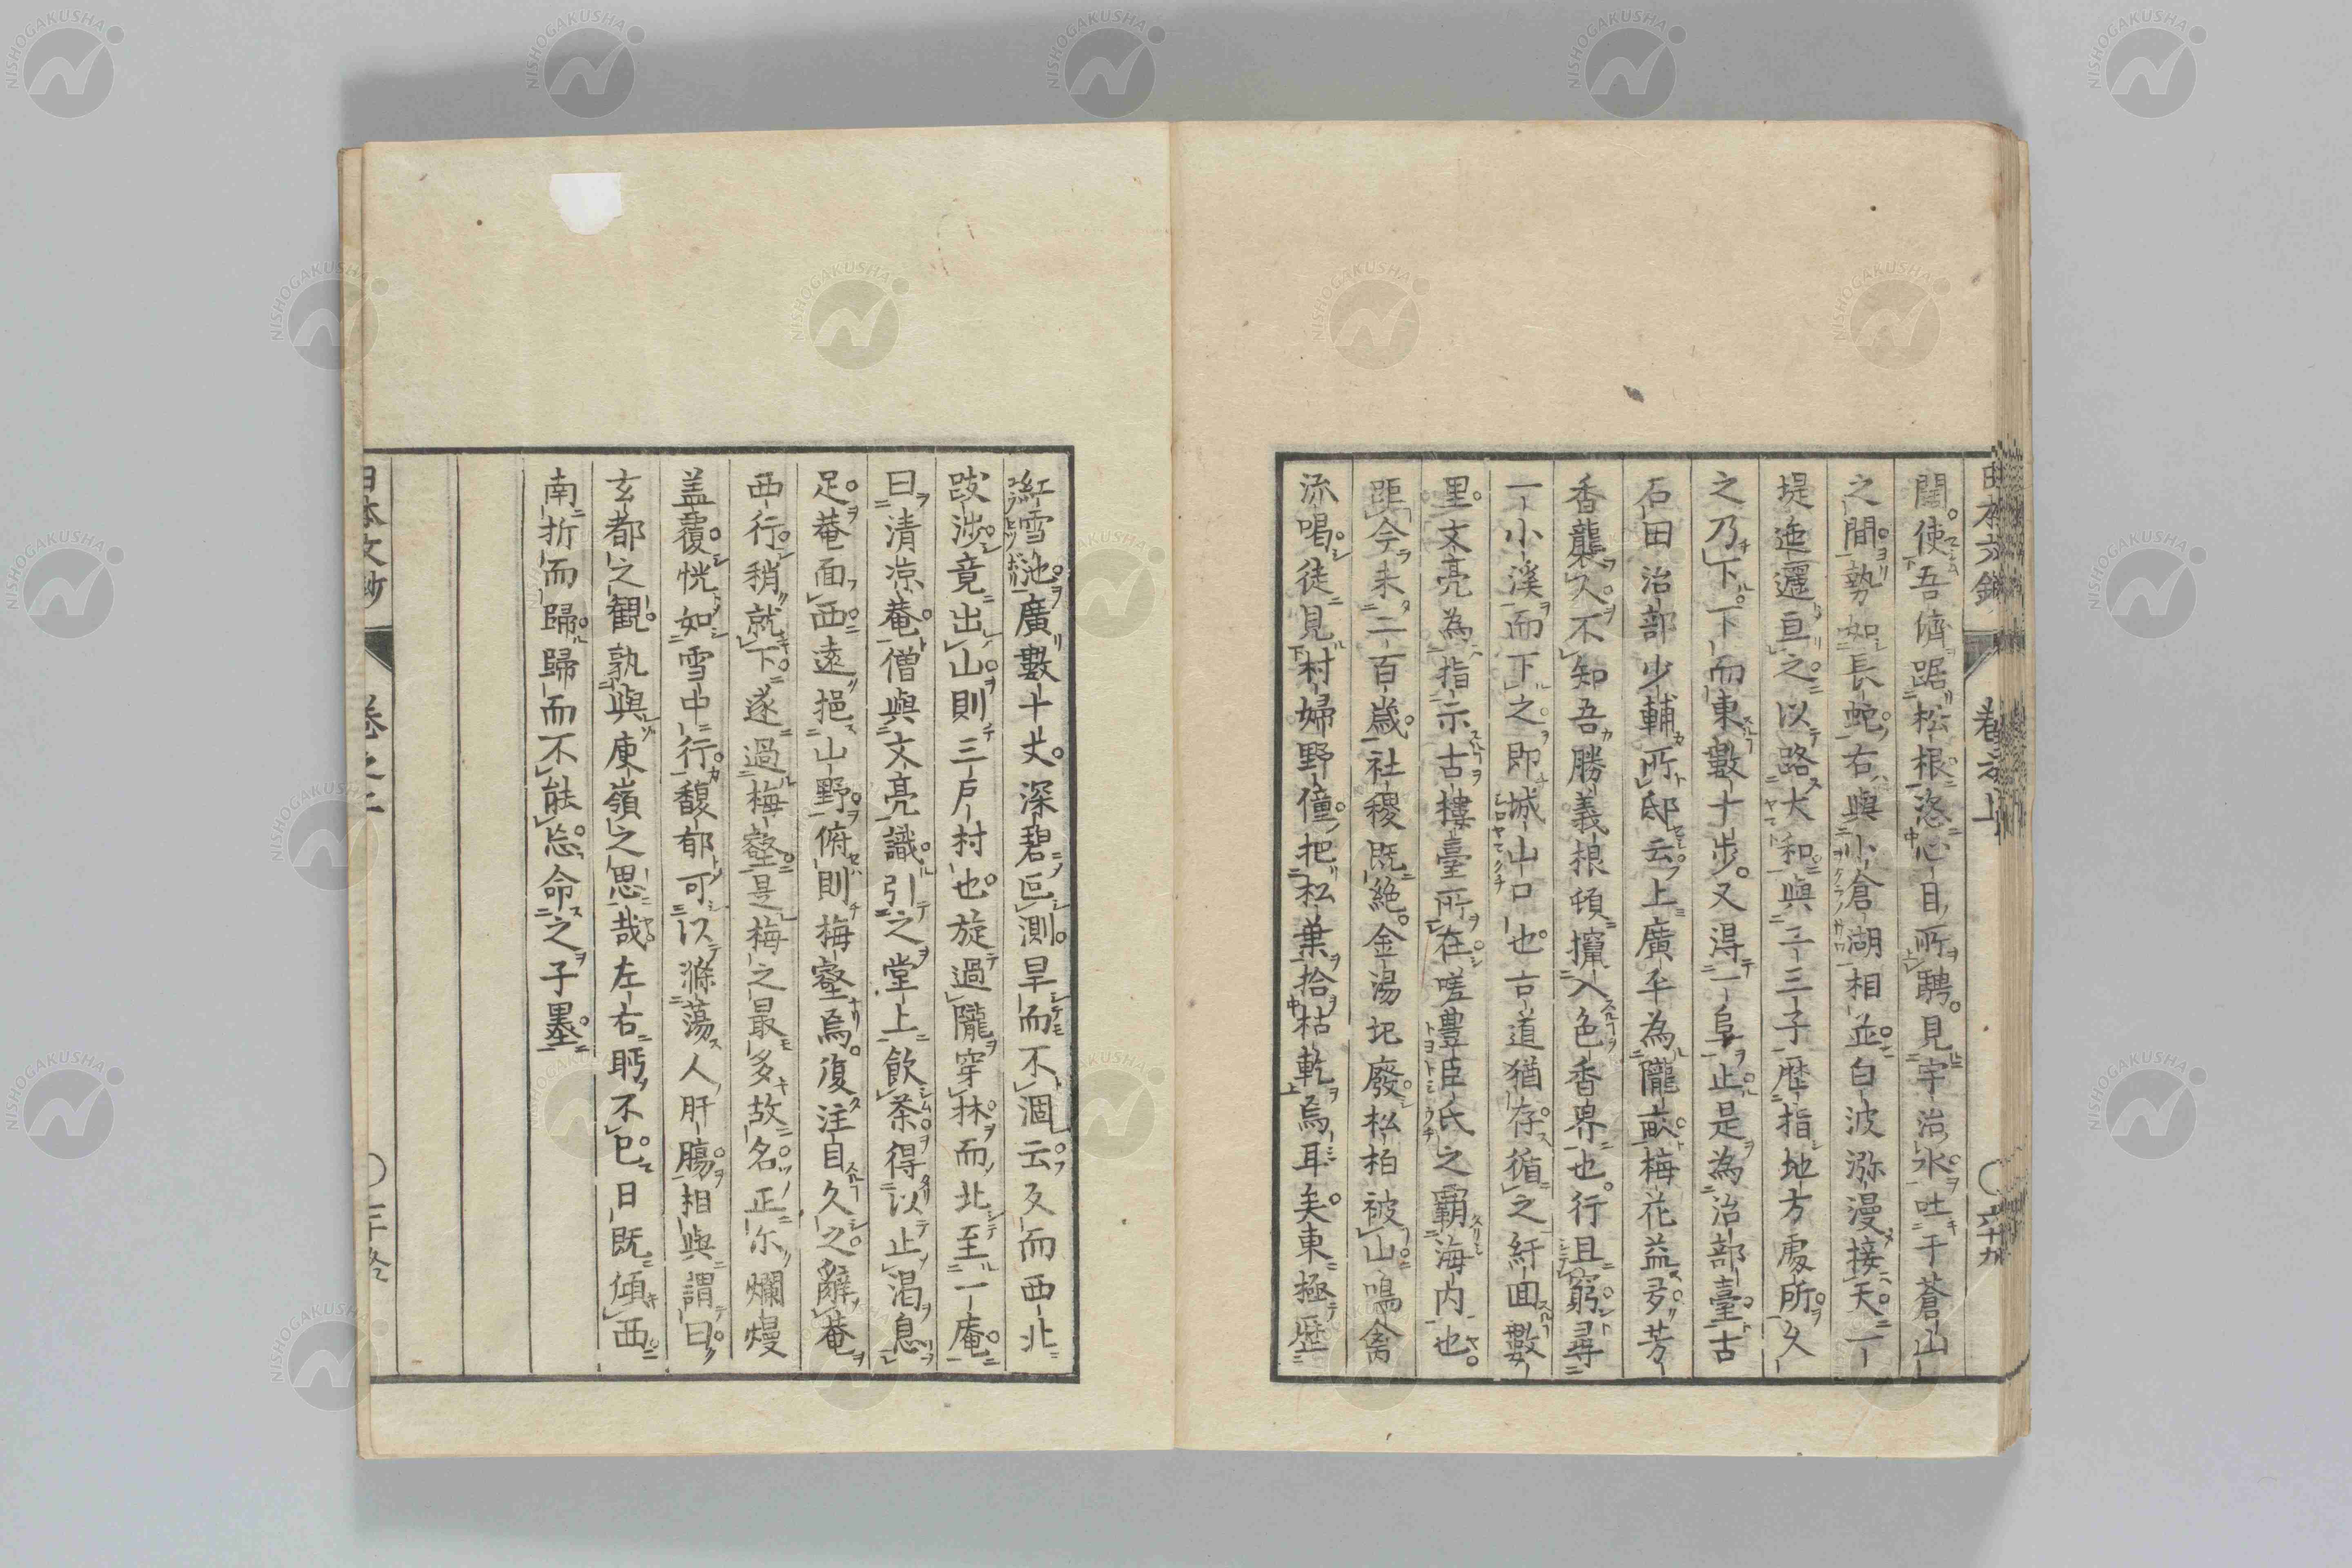 闊使吾儕踞松根恣心目所聘見宇治水吐于蒼山
之間勢如長蛇右與小倉湖相並白波瀰漫接天一
堤迤邐亘之以路大和與二三子歴指地方處所久
之乃下下而東數十步又得一阜止是為治部臺古
石田治部少輔所邸云上廣平為隴畝梅花益多芳
香襲人不知吾勝義根頓攛入色香界也行且窮尋
一小溪而下之即城山口也古道猶存循之紆回數
里文亮為指示古樓臺所在嗟豊臣氏之霸海内也
距今未二百歳社稷既絶金湯圮廢松柏被山鳴禽
流喝徒見村婦野僮把松葉拾枯乾焉耳矣東極歴
紅雪池廣數十丈深碧叵測旱而不涸云反而西北
跋涉竟出山則三戸村也旋過隴穿林而北至一庵
曰清涼庵僧與文亮識引之堂上飲茶得以止渇息
足菴面西遠挹山野俯則梅壑焉復注目久之辭菴
西行稍就下遂過梅壑是梅之最多故名正尓爛熳
盖覆恍如雪中行馥郁可以滌蕩人肝膓相與謂曰
玄都之觀孰與庾嶺之思哉左右眄不已日既傾西
南折而歸歸而不能忘命之子墨
日本文鈔 卷之上
NISHOGAKUSHA